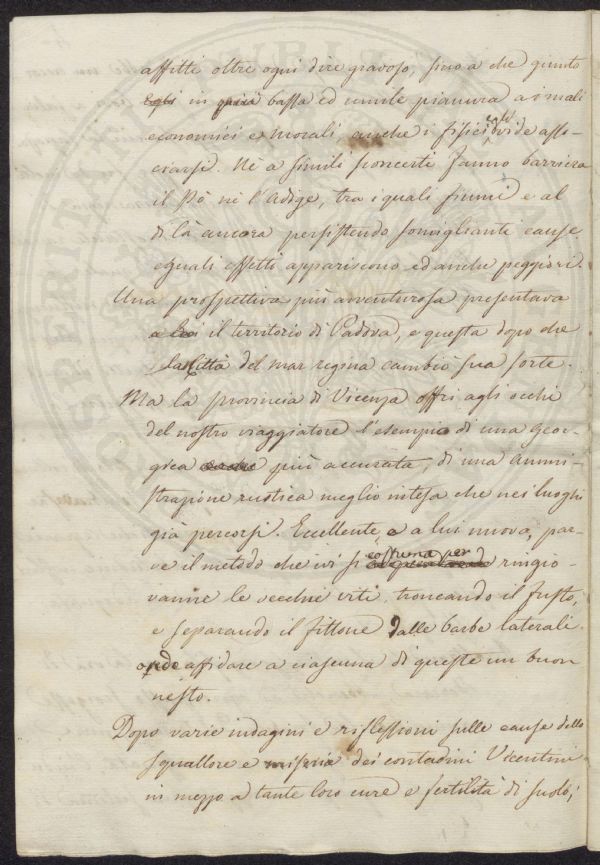 affitti oltre ogni dire gravoso, sino a che giunto
egli in quità bassa ed umile pianura a i mali
economici e morali, anche i fisici egli vide asso-
ciarsi. Nè a simili sconcerti fanno barriera
il Pò nè l'Adige, tra i quali fiumi e al
di là ancora persistendo somiglianti cause
eguali effetti appariscono, ed anche peggiori.
Una prospettiva più avventurosa presentava
a lui il territorio di Padova, e questa dopo che
la Città del mar regina cambiò sua sorte.
Ma la provincia di Vicenza offrì agli occhi
del nostro viaggiatore l'esempio di una Geor-
gica più accurata, di una Ammi-
strazione rustica meglio intesa che nei luoghi
già percorsi. Eccellente, e a lui nuovo, par-
ve il metodo che ivi si costuma per ringio-
vanire le vecchie viti, troncando il fusto,
e separando il fittone dalle barbe laterali
onde affidare a ciascuna di queste un buon
nesto.
Dopo varie indagini e riflessioni sulle cause dello
squallore e miseria dei contadini Vicentini
in mezzo a tante loro cure e fertilità di suolo,